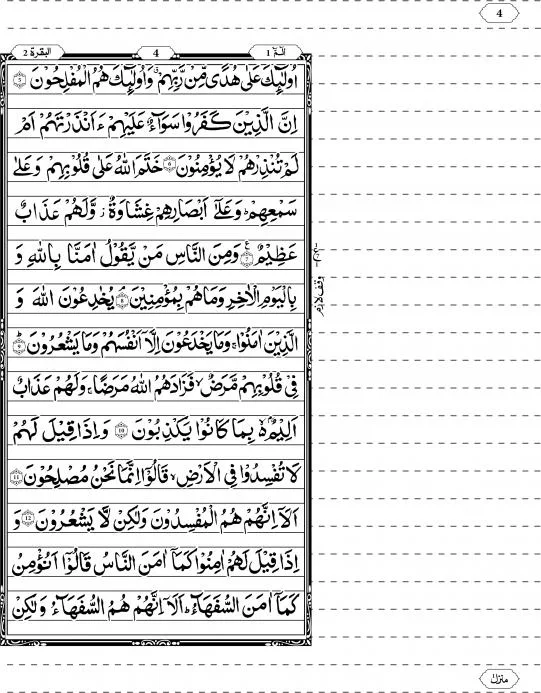 4
البقرة 2
4
الٓمّٓ 1
اُولٰٓئِكَ عَلٰى هُدًى مِّنْ رَّبِّهِمْ ۗ وَاُولٰٓئِكَ هُمُ الْمُفْلِحُوْنَ 5
اِنَّ الَّذِيْنَ كَفَرُوْا سَوَآءٌ عَلَيْهِمْ ءَاَنْذَرْتَهُمْ اَمْ
لَمْ تُنْذِرْهُمْ لَا يُؤْمِنُوْنَ 6 خَتَمَ اللّٰهُ عَلٰى قُلُوْبِهِمْ وَعَلٰى
سَمْعِهِمْ ؕ وَعَلٰٓى اَبْصَارِهِمْ غِشَاوَةٌ ؗ وَّلَهُمْ عَذَابٌ
عَظِيْمٌ 7 وَمِنَ النَّاسِ مَنْ يَّقُوْلُ اٰمَنَّا بِاللّٰهِ وَ
بِالْيَوْمِ الْاٰخِرِ وَمَا هُمْ بِمُؤْمِنِيْنَ 8 يُخٰدِعُوْنَ اللّٰهَ وَ
الَّذِيْنَ اٰمَنُوْا ۚ وَمَا يَخْدَعُوْنَ اِلَّآ اَنْفُسَهُمْ وَمَا يَشْعُرُوْنَ 9
فِىْ قُلُوْبِهِمْ مَّرَضٌ ۙ فَزَادَهُمُ اللّٰهُ مَرَضًا ۚ وَلَهُمْ عَذَابٌ
اَلِيْمٌ ۢ ۙ بِمَا كَانُوْا يَكْذِبُوْنَ 10 وَاِذَا قِيْلَ لَهُمْ
لَا تُفْسِدُوْا فِى الْاَرْضِ ۙ قَالُوْٓا اِنَّمَا نَحْنُ مُصْلِحُوْنَ 11
اَلَآ اِنَّهُمْ هُمُ الْمُفْسِدُوْنَ وَلٰكِنْ لَّا يَشْعُرُوْنَ 12 وَ
اِذَا قِيْلَ لَهُمْ اٰمِنُوْا كَمَآ اٰمَنَ النَّاسُ قَالُوْٓا اَنُؤْمِنُ
كَمَآ اٰمَنَ السُّفَهَآءُ ؕ اَلَآ اِنَّهُمْ هُمُ السُّفَهَآءُ وَلٰكِنْ
وقف لازم
منزل